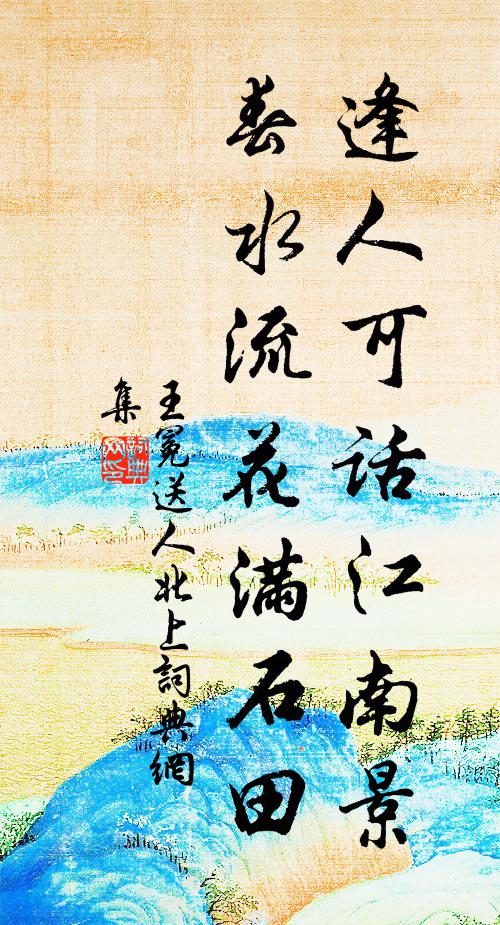 逢人可話江南景
春水流花滿石田
王冕送人北上詞典網
集